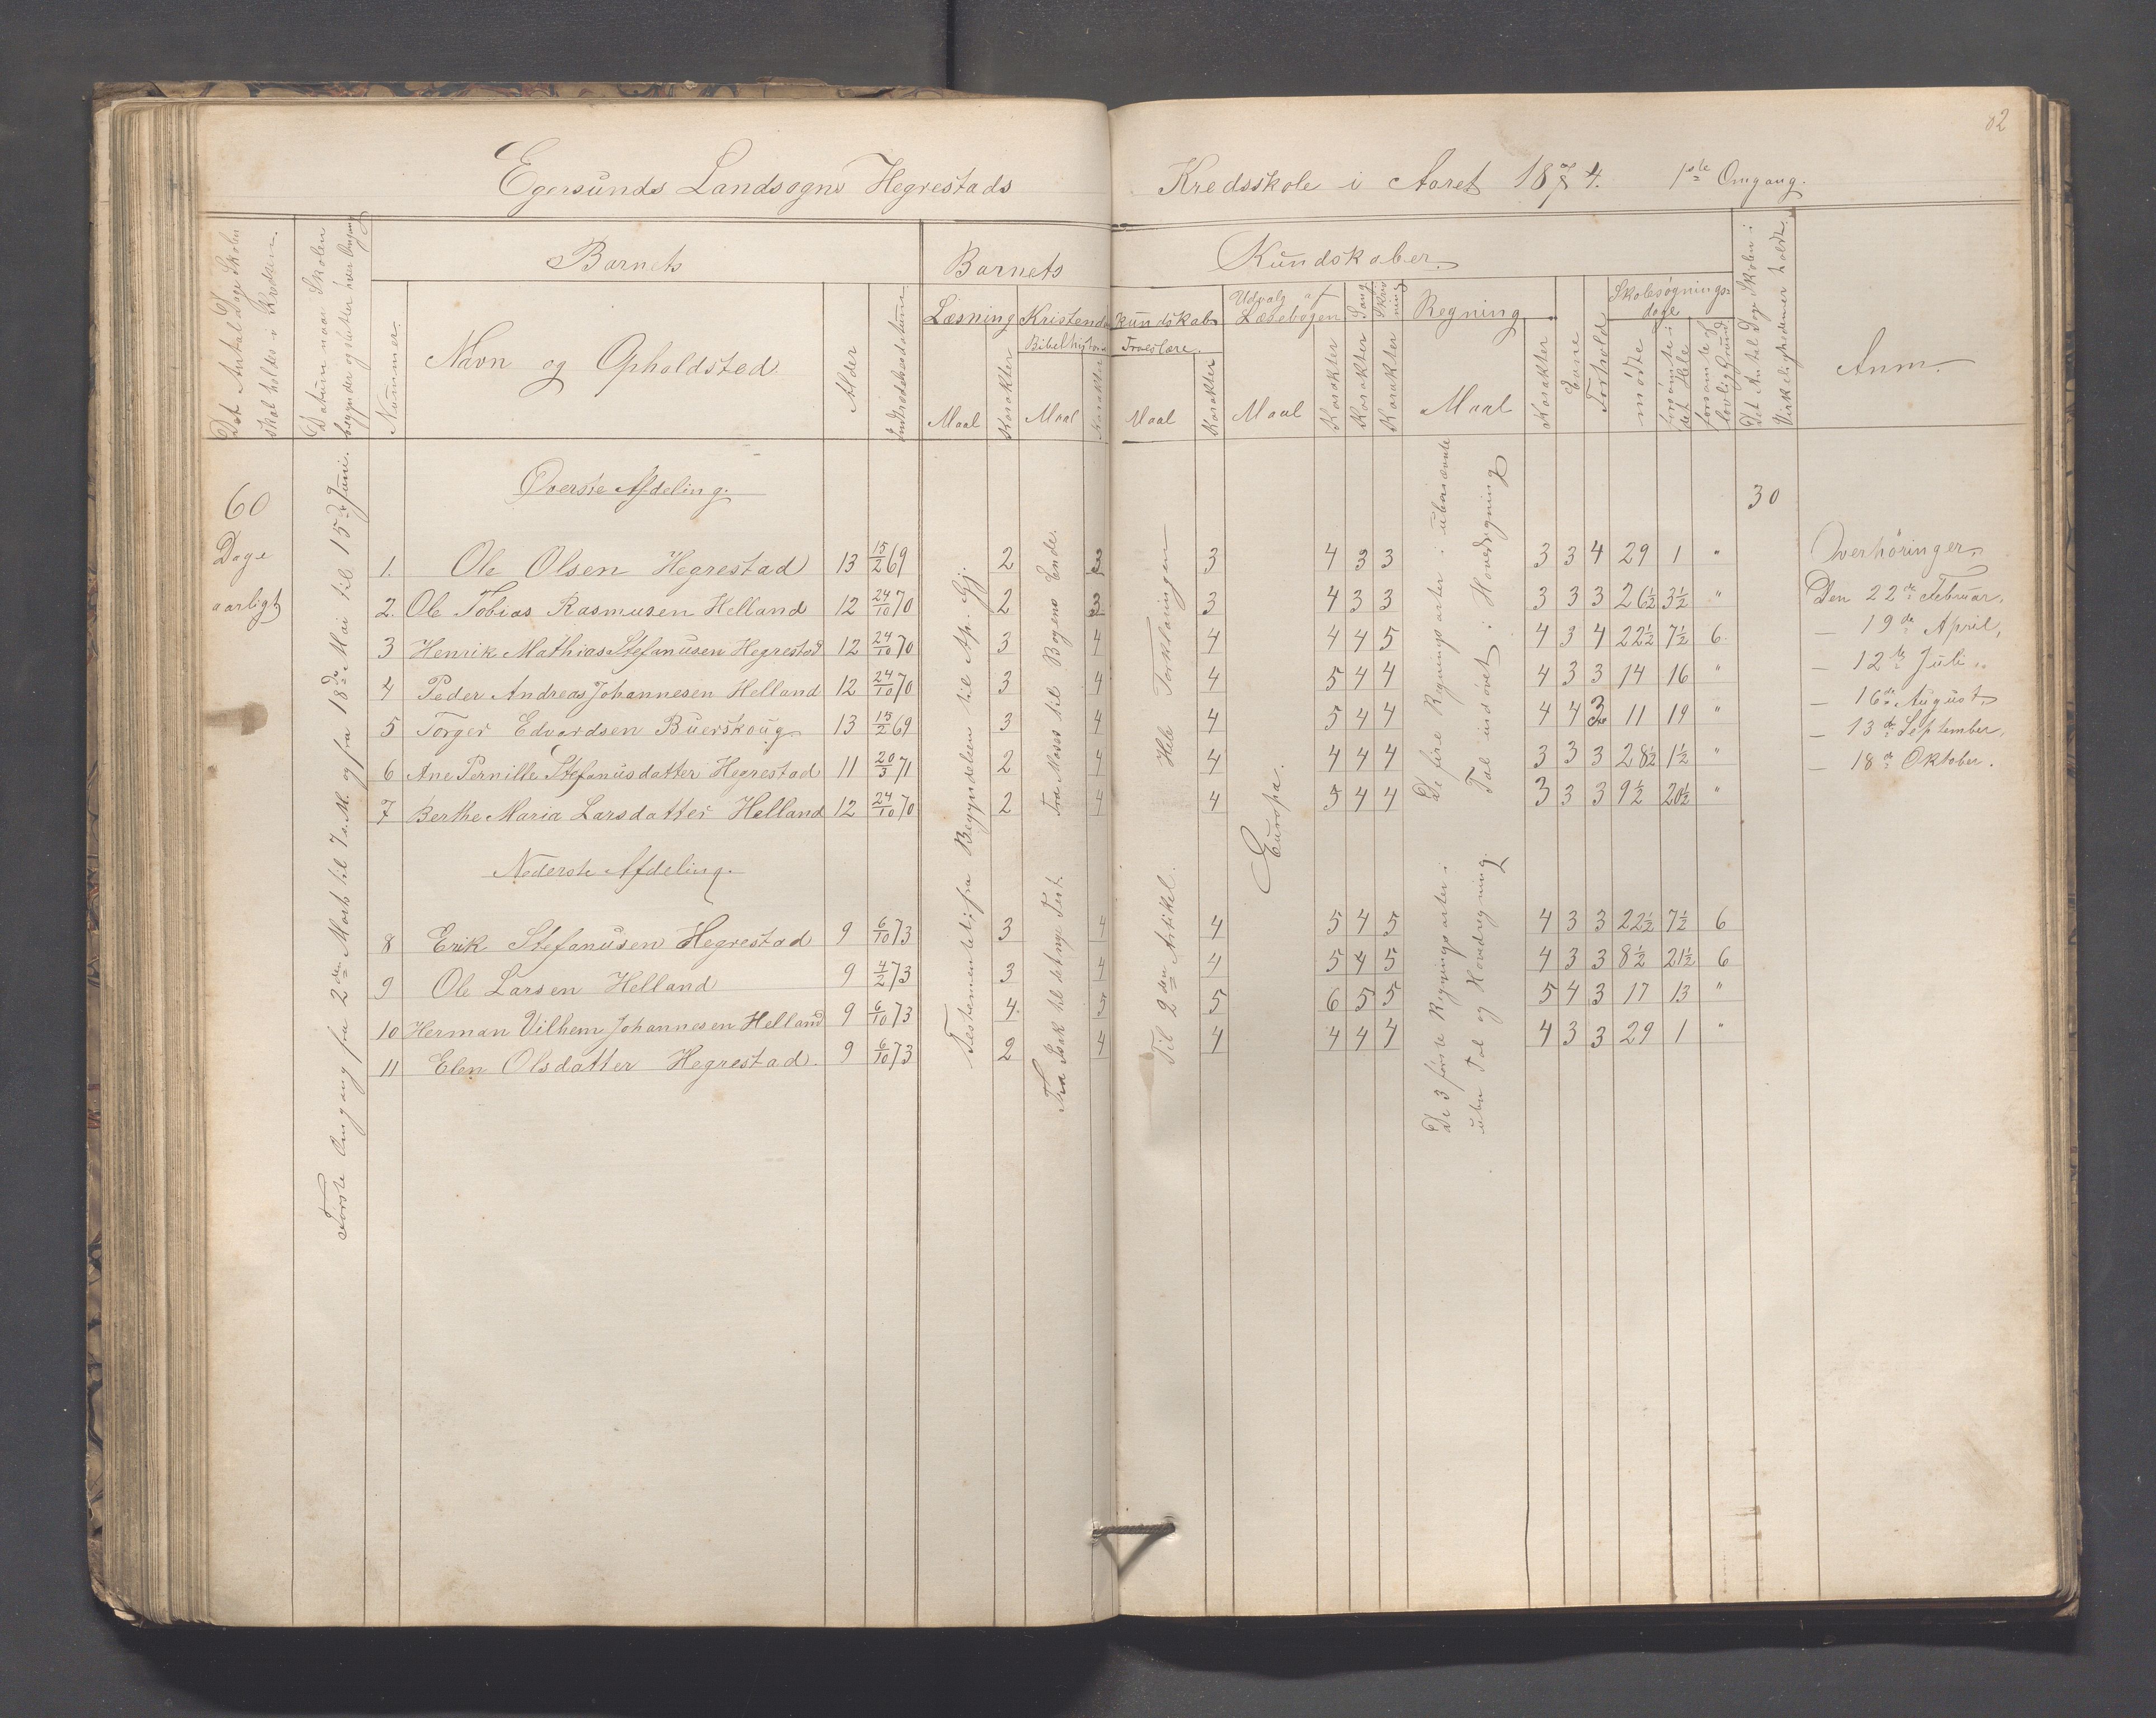 82
Egersunds Landsogns Hegrestads Kredsskole i Aaret 1874. 1ste Omgang.
Det Antal Dage Skolen skal holdes i Kredsen.
Datum naar Skolen begynder og slutter hver Omgang
Barnets
Barnets Kundskaber.
Nummer.
Navn og Opholdsted
Alder
Indtrædelsesdatum
Læsning
Maal
Karakter
Kristendomskundskab
Bibelhistorie
Maal
Karakter
Troeslære.
Maal
Karakter
Udvalg af Læsebogen
Maal
Karakter
Sang
Karakter
Skrivning
Karakter
Regning
Maal
Karakter
Evne
Forhold
Skolesøgningsdage
mødte
forsømte i det Hele
forsømte af lovlig Grund
Det Antal Dage Skolen i Virkeligheden holdt.
Anm.
60 Dage aarligt
Første Omgang fra 2den Marts til 7 s. M. og fra 18de Mai til 15de Juni.
30
Øverste Afdeling.
1. Ole Olsen Hegrestad 13 15/2 69 2 3 3 4 3 3 3 3 4 29 1 "
2. Ole Tobias Rasmusen Helland 12 24/10 70 2 3 3 4 3 3 3 3 3 26½ 3½ "
3 Henrik Mathias Stefanusen Hegrestad 12 24/10 70 3 4 4 4 4 5 4 3 4 22½ 7½ 6.
4 Peder Andreas Johannesen Helland 12 24/10 70 3 4 4 5 4 4 4 3 3 14 16 "
5 Torger Edvardsen Buerskoug 13 15/2 69 3 4 4 5 4 4 4 4 3 11 19 "
6 Ane Pernille Stefanusdatter Hegrestad 11 20/3 71 2 4 4 4 4 4 3 3 3 28½ 1½ "
7 Berthe Maria Larsdatter Helland 12 24/10 70 2 4 4 5 4 4 3 3 3 9½ 20½ "
Nederste Afdeling.
8 Erik Stefanusen Hegrestad 9 6/10 73 3 4 4 5 4 5 4 3 3 22½ 7½ 6
9 Ole Larsen Helland 9 4/2 73 3 4 4 5 4 5 4 3 3 8½ 21½ 6
10 Herman Vilhem Johannesen Helland 9 6/10 73 4. 5 5 6 5 5 5 4 3 17 13 "
11 Elen Olsdatter Hegrestad. 9 6/10 73 2 4 4 4 4 4 4 3 3 29 1 "
Testamentet; fra Begyndelsen til Ap. Gj.
Fra Moses til Bogens Ende.
Fra Isak til det nye Test.
Hele Forklaringen
Til 2den Artikel.
Europa.
De fire Regningsarter i ubenævnte Tal indøvet i Hovedregning
De 3 første Regningsarter i ubn Tal og Hovedregning.
Overhøringer.
Den 22de Februar,
— 19de April,
— 12te Juli "
— 16de August,
— 13de September,
— 18de Oktober.